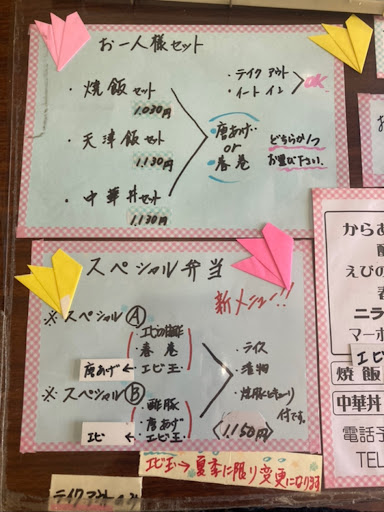 お一人様セット
・焼飯セット
1.030円
・天津飯セット
1.130円
・中華丼セット
1.130円
・テイクアウト
・イートイン
OK
・唐あげ
or
・春巻
どちらか1つ
お選び下さい。
スペシャル弁当
新メニュー!!
※スペシャルⒶ
・春巻
唐あげ←・エビ玉
※スペシャルⒷ
・酢豚
・唐あげ
エビ←・エビ玉
・ライス
・漬物
付です。
〈1.150円〉
エビ玉→夏季に限り変更になります
テイクアウトのみ
からあ
えびの
ニラ
マーボ
エビ
焼飯
中華丼
電話予
TEL